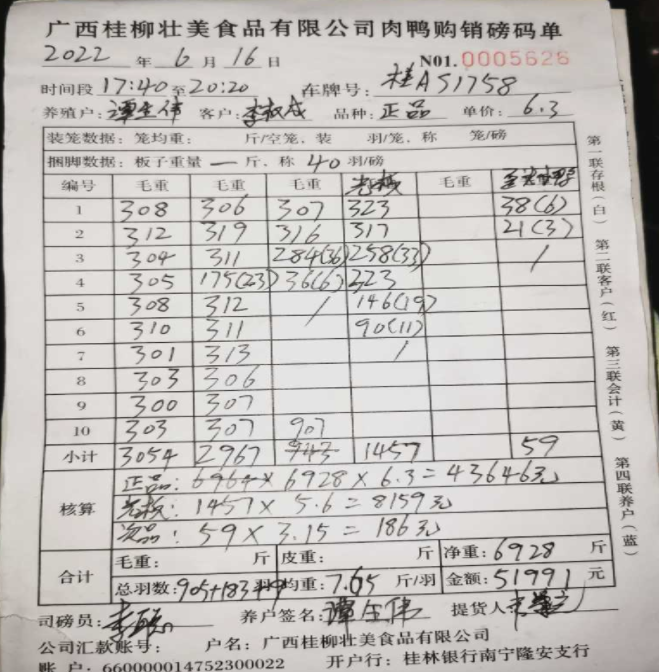 广西桂柳壮美食品有限公司肉鸭购销磅码单
2022 年 6 月 16 日 N01.0005626
时间段 17:40 至 20:20 车牌号: 桂A51758
养殖户: 客户: 品种: 正品 单价: 6.3
装笼数据: 笼均重: 斤/空笼、装 羽/笼、称 笼/磅
捆脚数据: 板子重量 — 斤、称 40 羽/磅
编号 毛重 毛重 毛重 毛重
1 308 306 307 323 38(6)
2 312 319 316 317 21(3)
3 304 311 284(36) 258(33) /
4 305 175(23) 36(6) 323
5 308 312 / 146(19)
6 310 311 90(11)
7 301 313 /
8 303 306
9 300 307
10 303 307 907
小计 3054 2967 943 1457 59
核算
正品: 6964 × 6928 × 6.3 = 43646元
: 1457 × 5.6 = 8159元
次品: 59 × 3.15 = 186元
合计
毛重: 斤 皮重: 斤 净重: 6928 斤
总羽数: 905+183 均重: 7.65 斤/羽 金额: 51991 元
司磅员: 养户签名: 提货人
公司汇款账号: 户名: 广西桂柳壮美食品有限公司
账 户: 660000014752300022 开户行: 桂林银行南宁隆安支行
第一联存根(白) 第二联客户(红) 第三联会计(黄) 第四联养户(蓝)